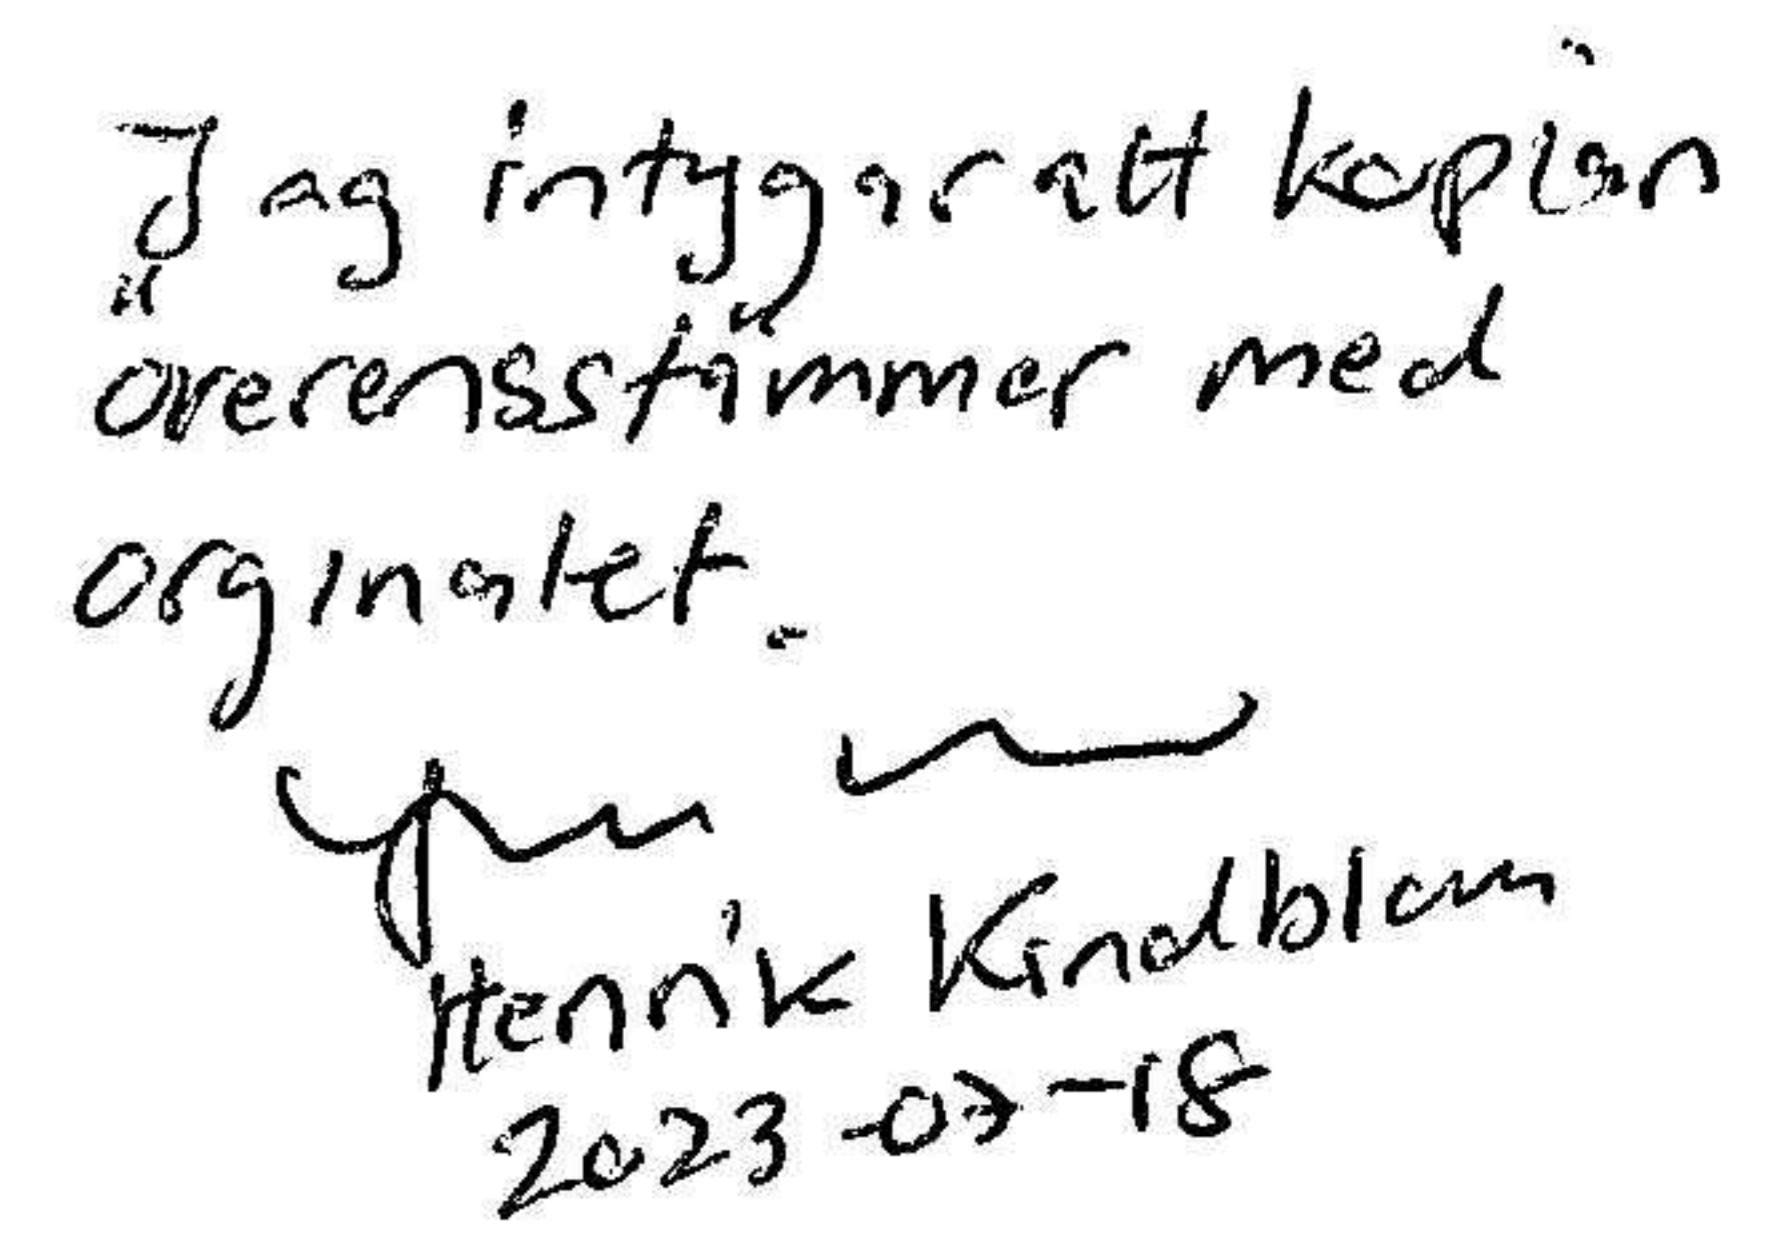 Jag intygar att kopian
överensstämmer med
orginalet.
Henrik Kindblom
2023-07-18